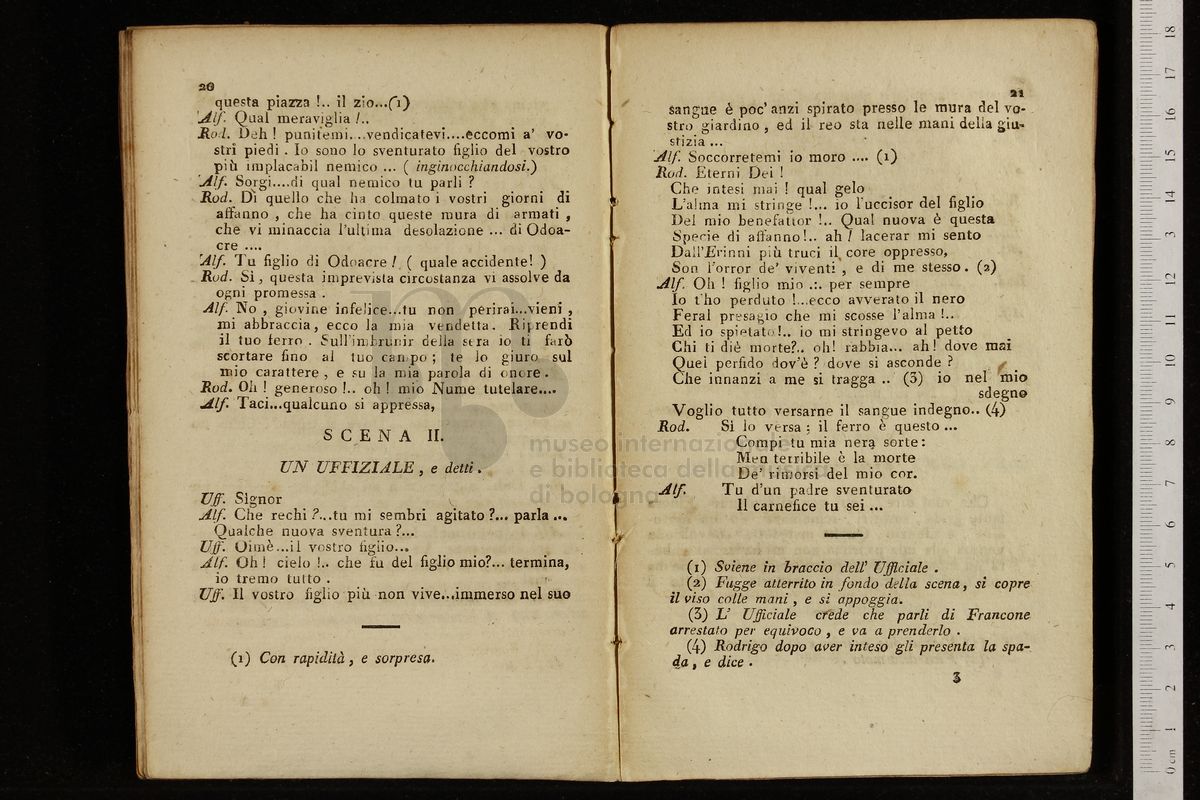 20
questa piazza !.. il zio...(1)
Alf. Qual meraviglia !..
Rod. Deh ! punitemi...vendicatevi....eccomi a' vo-
stri piedi . Io sono lo sventurato figlio del vostro
più implacabil nemico ... ( inginocchiandosi.)
Alf. Sorgi....di qual nemico tu parli ?
Rod. Di quello che ha colmato i vostri giorni di
affanno , che ha cinto queste mura di armati ,
che vi minaccia l'ultima desolazione ... di Odoa-
cre ....
Alf. Tu figlio di Odoacre ! ( quale accidente! )
Rod. Si , questa imprevista circostanza vi assolve da
ogni promessa .
Alf. No , giovine infelice...tu non perirai...vieni ,
mi abbraccia, ecco la mia vendetta. Riprendi
il tuo ferro . Sull'imbrunir della sera io ti farò
scortare fino al tuo campo ; te lo giuro sul
mio carattere , e su la mia parola di onore .
Rod. Oh ! generoso !.. oh ! mio Nume tutelare....
Alf. Taci...qualcuno si appressa,
SCENA II.
UN UFFIZIALE , e detti .
Uff. Signor
Alf. Che rechi ?...tu mi sembri agitato ?... parla ...
Qualche nuova sventura ?...
Uff. Oimè...il vostro figlio...
Alf. Oh ! cielo !.. che fu del figlio mio?... termina,
io tremo tutto .
Uff. Il vostro figlio più non vive...immerso nel suo
(1) Con rapidità , e sorpresa.
21
sangue è poc' anzi spirato presso le mura del vo-
stro giardino , ed il reo sta nelle mani della giu-
stizia ...
Alf. Soccorretemi io moro .... (1)
Rod. Eterni Dei !
Che intesi mai ! qual gelo
L'alma mi stringe !... io l'uccisor del figlio
Del mio benefattor !.. Qual nuova è questa
Specie di affanno!.. ah ! lacerar mi sento
Dall'Erinni più truci il core oppresso,
Son l'orror de' viventi , e di me stesso. (2)
Alf. Oh ! figlio mio .:. per sempre
Io t'ho perduto !...ecco avverato il nero
Feral presagio che mi scosse l'alma !..
Ed io spietato!.. io mi stringevo al petto
Chi ti diè morte?.. oh! rabbia... ah! dove mai
Quel perfido dov'è ? dove si asconde ?
Che innanzi a me si tragga .. (3) io nel mio
sdegno
Voglio tutto versarne il sangue indegno.. (4)
Rod. Si lo versa ; il ferro è questo ...
Compi tu mia nera sorte:
Men terribile è la morte
De' rimorsi del mio cor.
Alf. Tu d'un padre sventurato
Il carnefice tu sei ...
(1) Sviene in braccio dell' Ufficiale .
(2) Fugge atterrito in fondo della scena, si copre
il viso colle mani , e si appoggia.
(3) L' Ufficiale crede che parli di Francone
arrestato per equivoco , e va a prenderlo .
(4) Rodrigo dopo aver inteso gli presenta la spa-
da , e dice .
3
museo internazionale
e biblioteca della musica
di bologna
0 cm 1 2 3 4 5 6 7 8 9 10 11 12 13 14 15 16 17 18